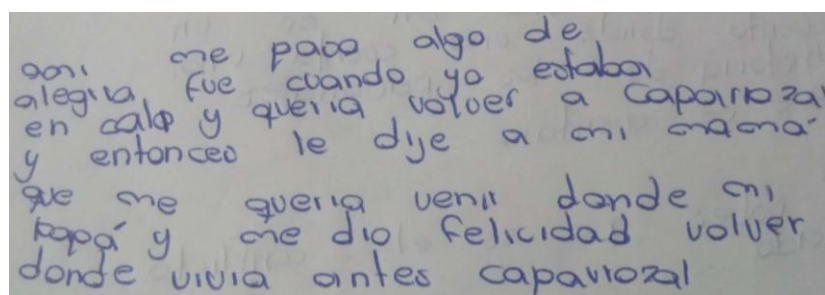 ami me paso algo de
alegria fue cuando yo estaba
en calo y queria volver a caparrozal
y entonces le dije a mi mamá
que me queria venir donde mi
papá y me dio felicidad volver
donde vivia antes caparrozal